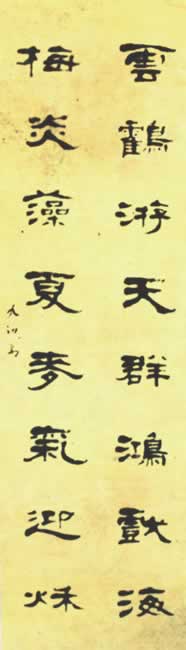 雲鶴游天群鴻戲海
梅炎藻夏麦氣迎秌